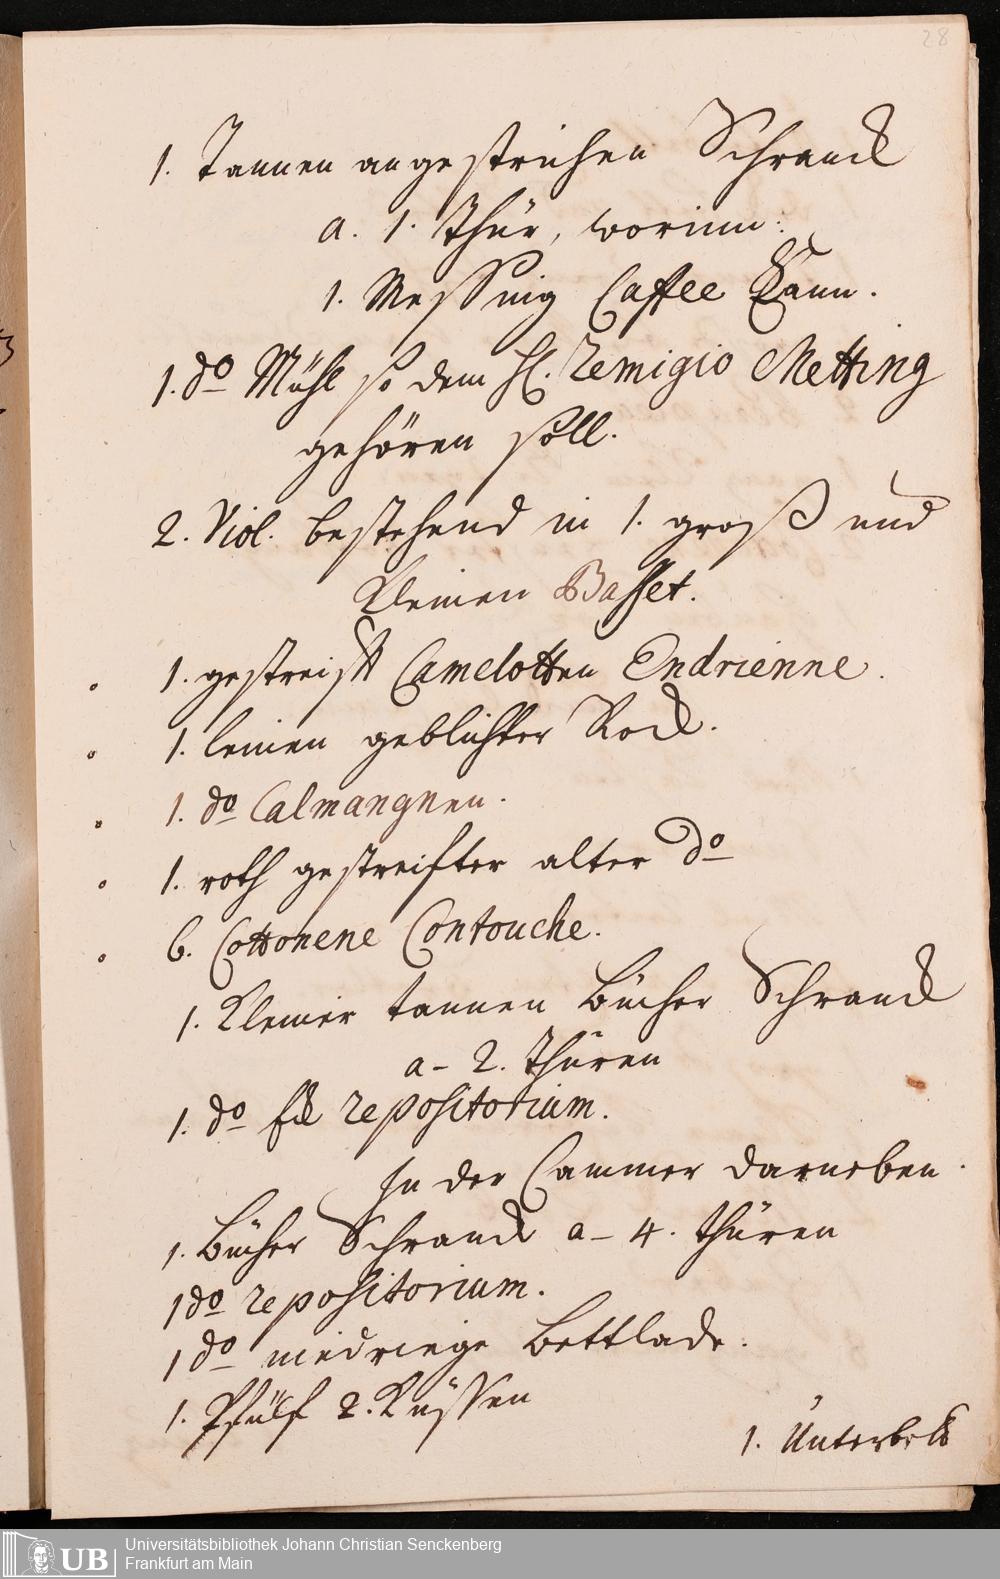 28
1. Tannen angestrichen Schranck
a. 1. Thür, worinn:
1. Messing Caffee Kann.
1. do Mühl so dem H. Remigio Metting
gehören soll.
2. Viol. bestehend in 1. groß und
kleinen Basset.
1. gestreifft Camelotten Endrienne.
1. leinen geblichter Rock.
1. do Calmangnen.
1. roth gestreifter alter do
6. Cottonene Contouche.
1. kleiner tannen Bücher Schranck
a - 2. Thüren
1. do repositorium.
In der Cammer darneben.
1. Bücher Schranck a - 4. thüren
1 do repositorium.
1 do niedriege Bettlade.
1. Pfülf 2. Küssen
1. Unterbett
UB
Universitätsbibliothek Johann Christian Senckenberg
Frankfurt am Main